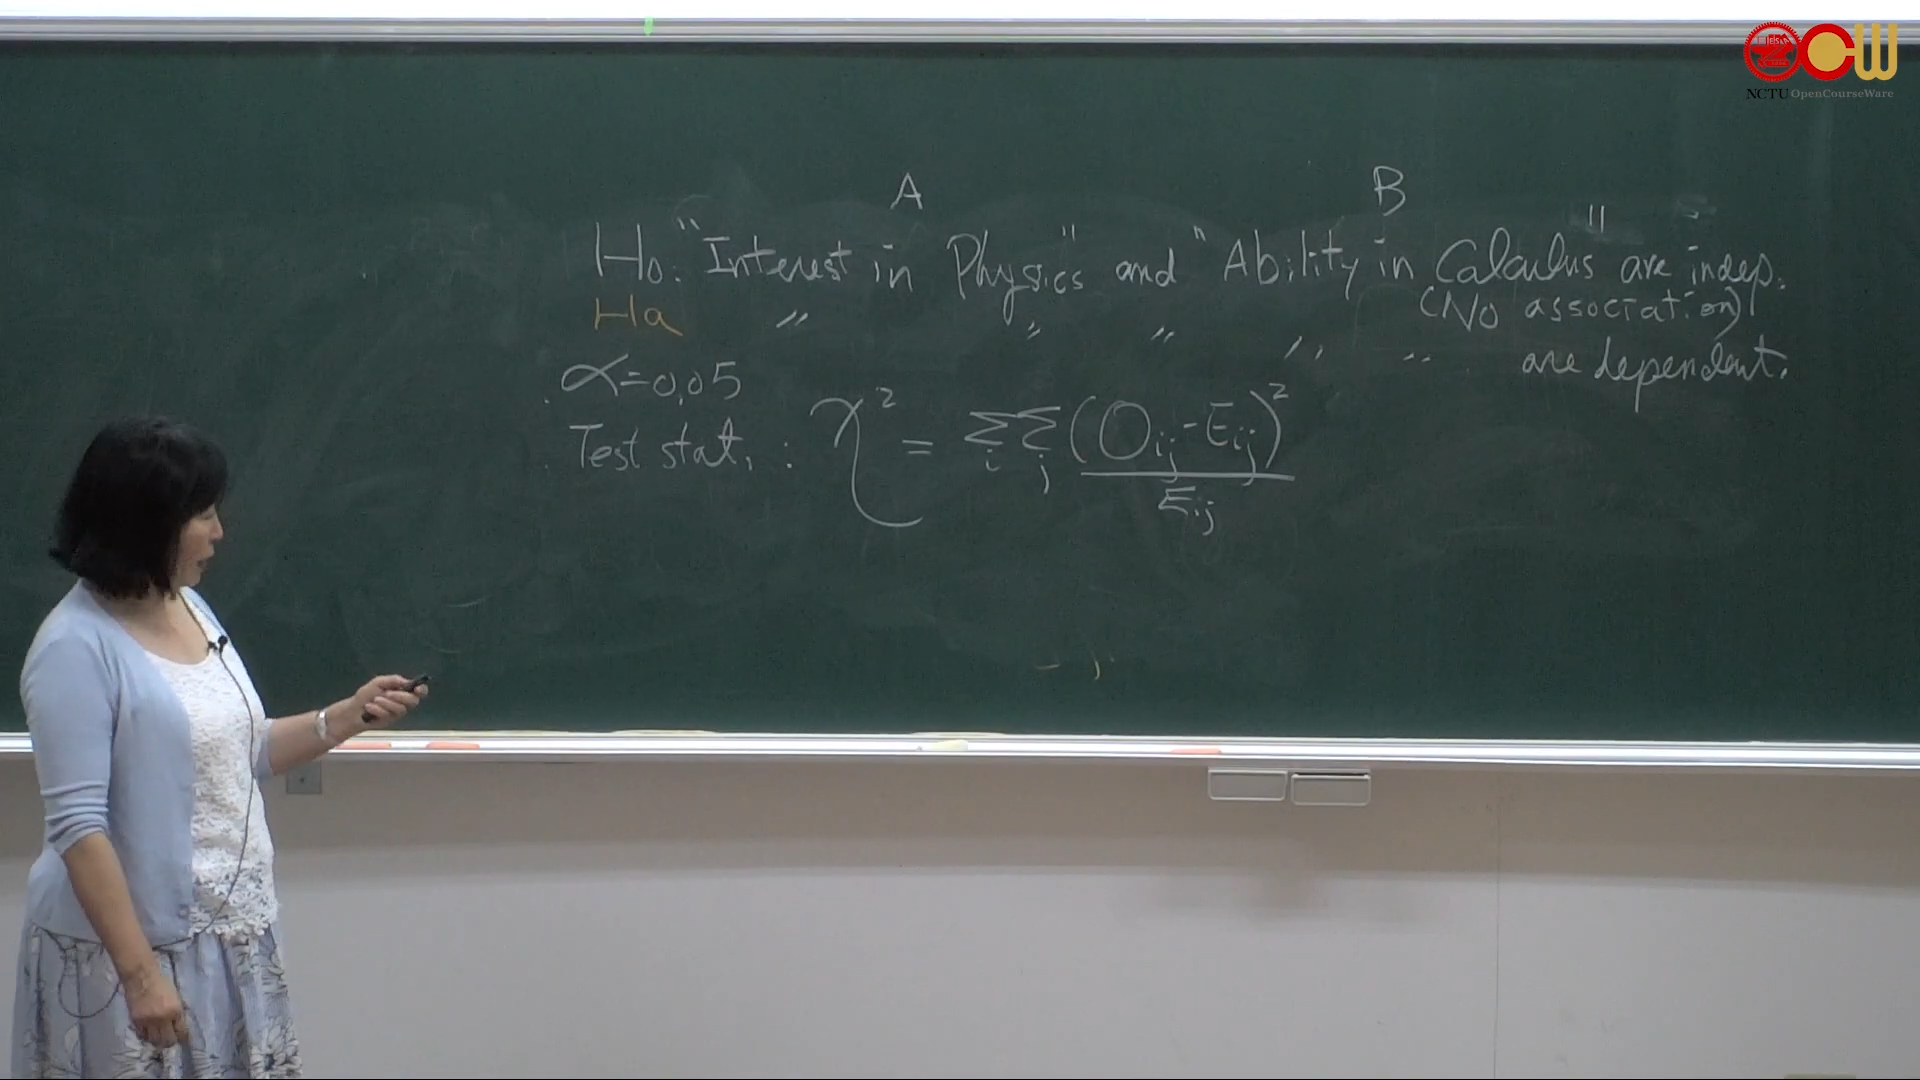 OCW
NCTU OpenCourseWare
A B
H₀: "Interest in Physics" and "Ability in Calculus" are indep.
(No association)
Ha 〃 〃 〃 〃 〃 are dependent.
α=0.05
Test stat. : χ² = Σᵢ Σⱼ (Oᵢⱼ-Eᵢⱼ)² / Eᵢⱼ